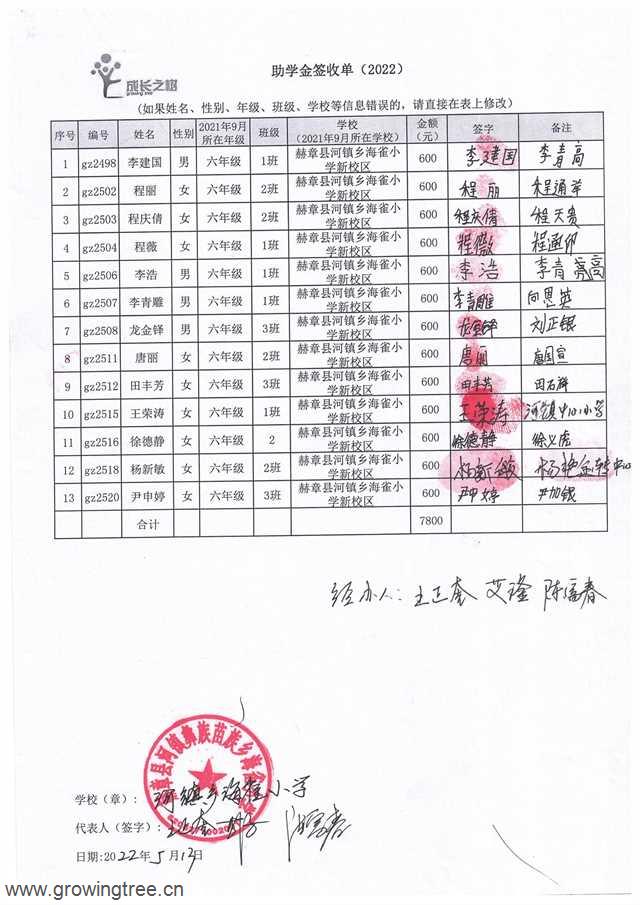 成长之树
growing tree
助学金签收单（2022）
（如果姓名、性别、年级、班级、学校等信息错误的，请直接在表上修改）
序号 编号 姓名 性别 2021年9月所在年级 班级 学校（2021年9月所在学校） 金额（元） 签字 备注
1 gz2498 李建国 男 六年级 1班 赫章县河镇乡海雀小学新校区 600 李建国 李青高
2 gz2502 程丽 女 六年级 2班 赫章县河镇乡海雀小学新校区 600 程丽 程通举
3 gz2503 程庆倩 女 六年级 2班 赫章县河镇乡海雀小学新校区 600 程庆倩 程天贵
4 gz2504 程薇 女 六年级 1班 赫章县河镇乡海雀小学新校区 600 程薇
5 gz2506 李浩 男 六年级 1班 赫章县河镇乡海雀小学新校区 600 李浩 李青高
6 gz2507 李青雕 男 六年级 1班 赫章县河镇乡海雀小学新校区 600 李青雕 向恩英
7 gz2508 龙金铎 男 六年级 3班 赫章县河镇乡海雀小学新校区 600 龙金铎 刘正银
8 gz2511 唐丽 女 六年级 2班 赫章县河镇乡海雀小学新校区 600 唐丽 唐国宣
9 gz2512 田丰芳 女 六年级 3班 赫章县河镇乡海雀小学新校区 600 田丰芳
10 gz2515 王荣涛 女 六年级 1班 赫章县河镇乡海雀小学新校区 600 王荣涛 河镇中心小学
11 gz2516 徐德静 女 六年级 2 赫章县河镇乡海雀小学新校区 600 徐德静 徐义虎
12 gz2518 杨新敏 女 六年级 2班 赫章县河镇乡海雀小学新校区 600 杨新敏
13 gz2520 尹申婷 女 六年级 3班 赫章县河镇乡海雀小学新校区 600 尹申婷
合计 7800
经办人：王正奎 艾瑾 陈富春
赫章县河镇彝族苗族乡海雀
学校（章）：河镇乡海雀小学
代表人（签字）：
日期：2022年5月13日
www.growingtree.cn